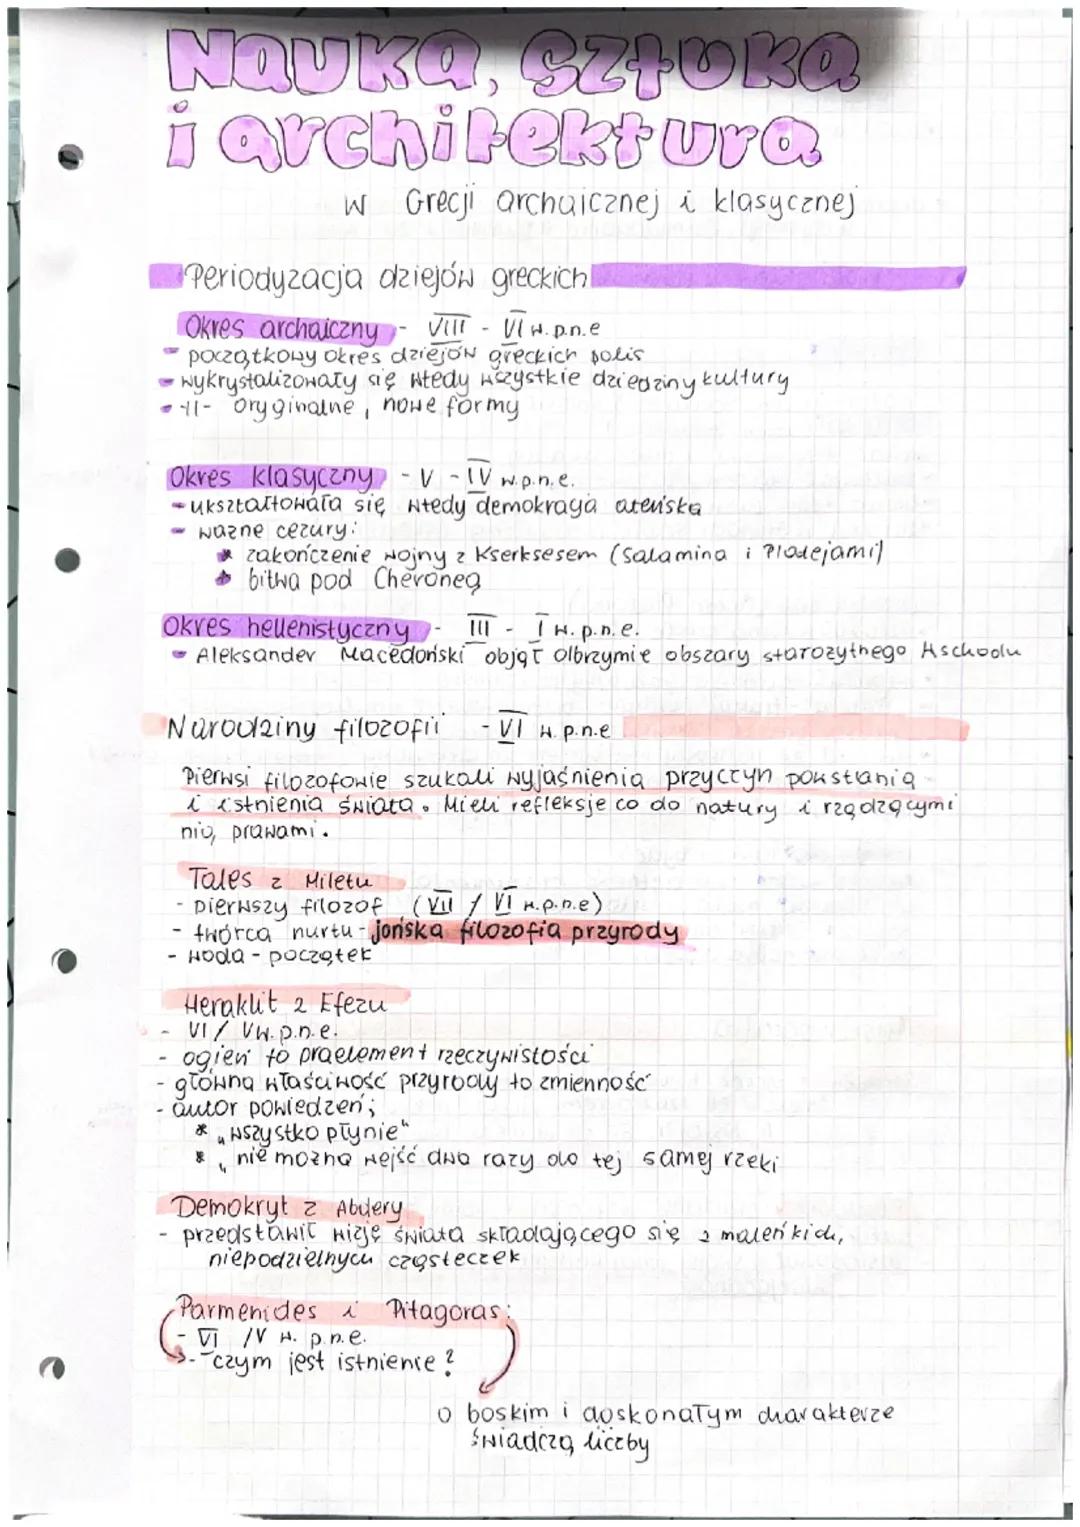 Nauka, sztuka
i architektura
w Grecji archaicznej i klasycznej
Periodyzacja dziejów greckich
Okres archaiczny - VIII - VI w.p.n.e
- początkowy okres dziejów greckich polis
- wykrystalizowały się wtedy wszystkie dziedziny kultury
- -11- oryginalne, nowe formy
Okres klasyczny - V - IV w.p.n.e.
- ukształtowała się wtedy demokracja ateńska
- ważne cezury:
* zakończenie wojny z Kserksesem (Salamina i Platejami)
* bitwa pod Cheroneą
Okres hellenistyczny - III - I w.p.n.e.
- Aleksander Macedoński objął olbrzymie obszary starożytnego Wschodu
Narodziny filozofii - VI w.p.n.e
Pierwsi filozofowie szukali wyjaśnienia przyczyn powstania
i istnienia świata. Mieli refleksje co do natury i rządzącymi
nią prawami.
Tales z Miletu
- pierwszy filozof (VII / VI w.p.n.e)
- twórca nurtu - jońska filozofia przyrody
- woda - początek
Heraklit z Efezu
- VI / V w.p.n.e.
- ogień to praelement rzeczywistości
- główną właściwość przyrody to zmienność
- autor powiedzeń;
* „wszystko płynie"
* „nie można wejść dwa razy do tej samej rzeki
Demokryt z Abdery
- przedstawił wizję świata składającego się z maleńkich,
niepodzielnych cząsteczek
Parmenides i Pitagoras:
- VI / V w. p.n.e.
- czym jest istnienie?
o boskim i doskonałym charakterze
świadczą liczby